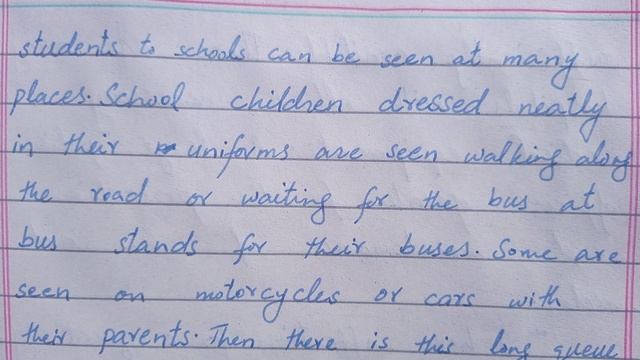 students to schools can be seen at many
places. School children dressed neatly
in their uniforms are seen walking along
the road or waiting for the bus at
bus stands for their buses. Some are
seen on motorcycles or cars with
their parents. Then there is this long queue